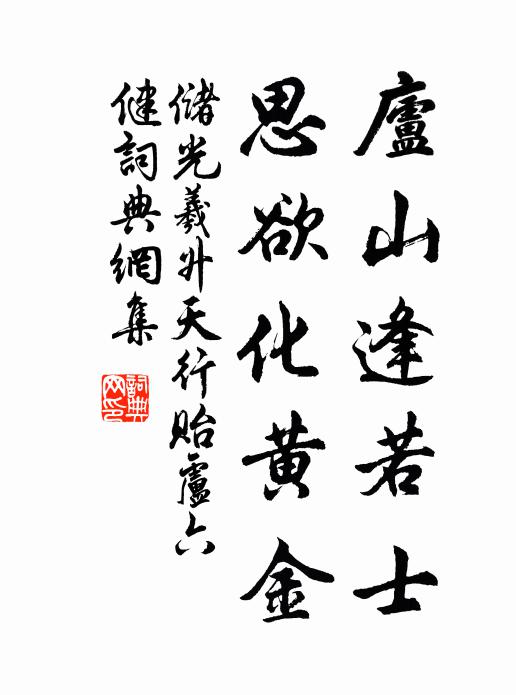 廬山逢若士
思欲化黃金
儲光羲升天行貽盧六
健詞典網集
詞典
网印